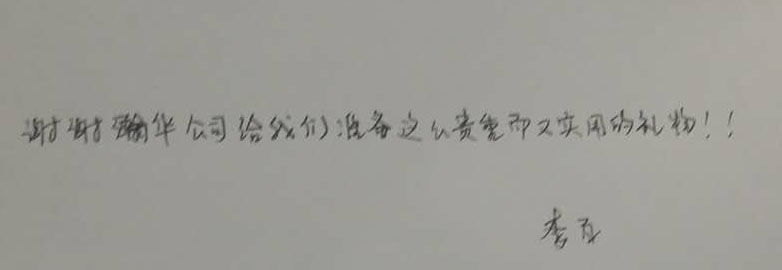 谢谢瀚华公司给我们准备这么贵重而又实用的礼物！！
李